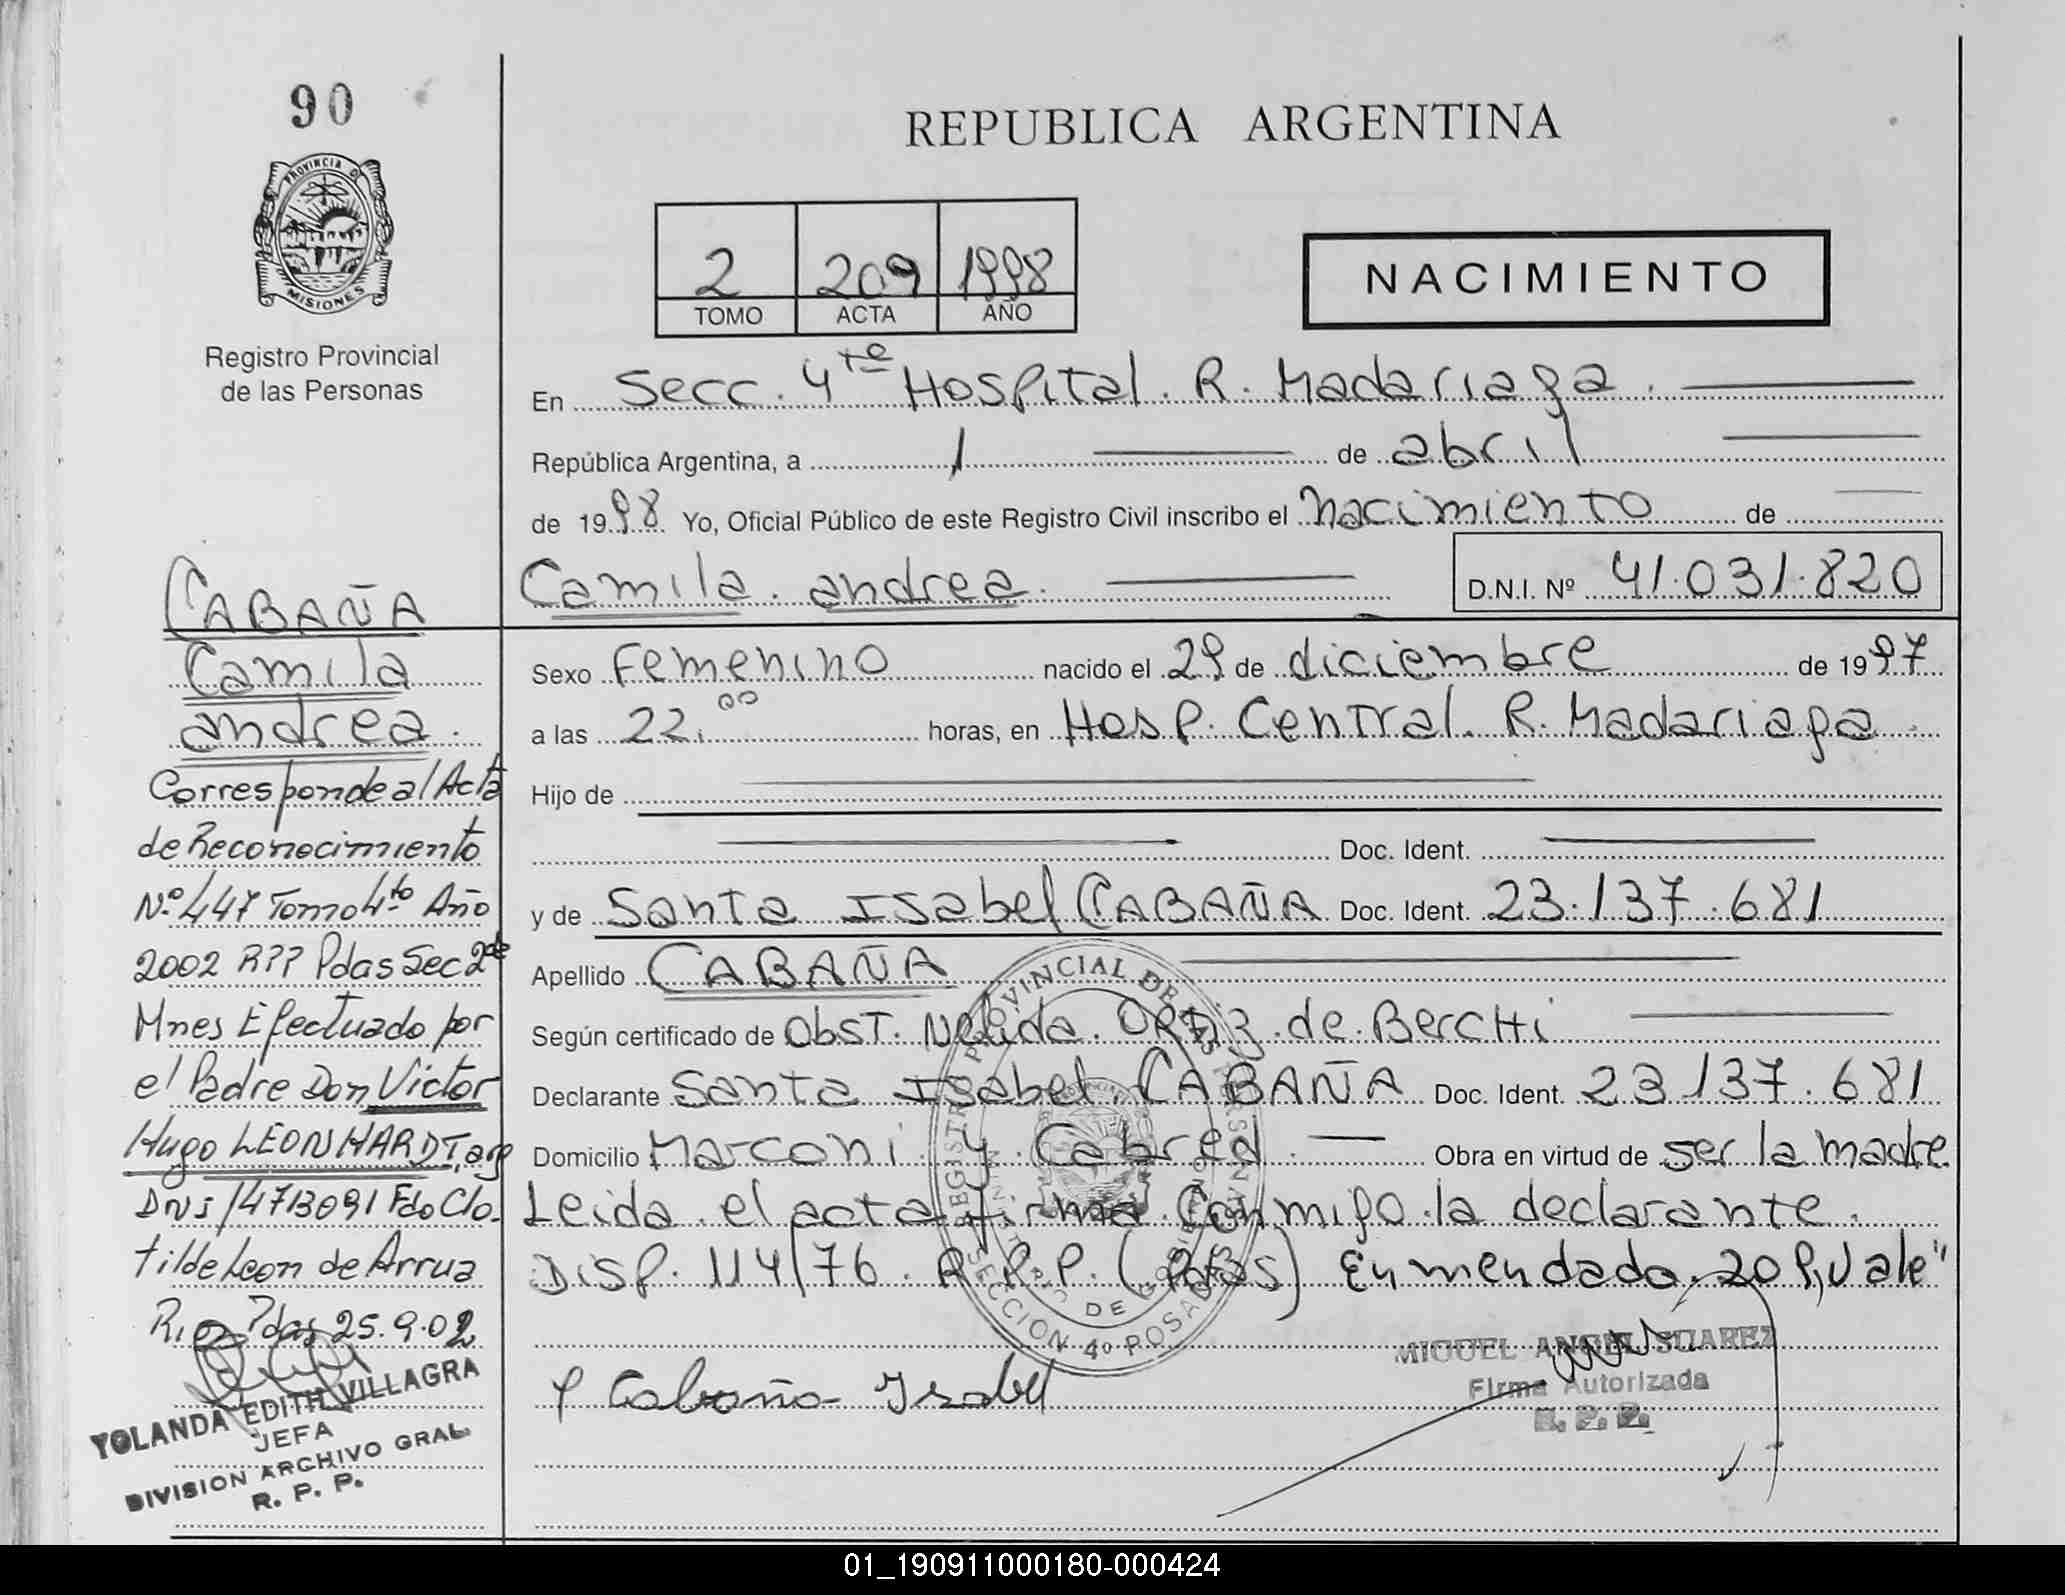 90
PROVINCIA D
MISIONES
Registro Provincial
de las Personas
REPUBLICA ARGENTINA
2 209 1998
TOMO ACTA AÑO
NACIMIENTO
En Secc. 4ta Hospital. R. Madariaga.
República Argentina, a 1 de abril
de 1998 Yo, Oficial Público de este Registro Civil inscribo el nacimiento de
Camila. andrea. D.N.I. Nº 41.031.820
Sexo Femenino nacido el 29 de diciembre de 1997
a las 22.00 horas, en Hosp. Central. R. Madariaga.
Hijo de
Doc. Ident.
y de Santa Isabel CABAÑA Doc. Ident. 23.137.681
Apellido CABAÑA
Según certificado de Obst. Nelida. Ortiz. de. Berchi
Declarante Santa Isabel. CABAÑA Doc. Ident. 23.137.681
Domicilio Marconi y Cabred. Obra en virtud de ser la madre.
Leida. el acta firma conmigo la declarante.
Disp. 114/76. R.P.P. (Pdas) Enmendado. 209, Vale"
Cabaña Isabel
MIGUEL ANGEL SUAREZ
Firma Autorizada
R. P. P.
CABAÑA
Camila
andrea.
Corresponde al Acta
de Reconocimiento
Nº 447 Tomo 4to Año
2002 RPP Pdas Sec 2da
Mnes Efectuado por
el Padre Don Victor
Hugo LEONHARDT, arg
Dni 14713091 Fdo Clo-
tilde Leon de Arrua
Pdas 25.9.02
YOLANDA EDITH VILLAGRA
JEFA
DIVISION ARCHIVO GRAL.
R. P. P.
SECCION 4º POSADAS
01_190911000180-000424